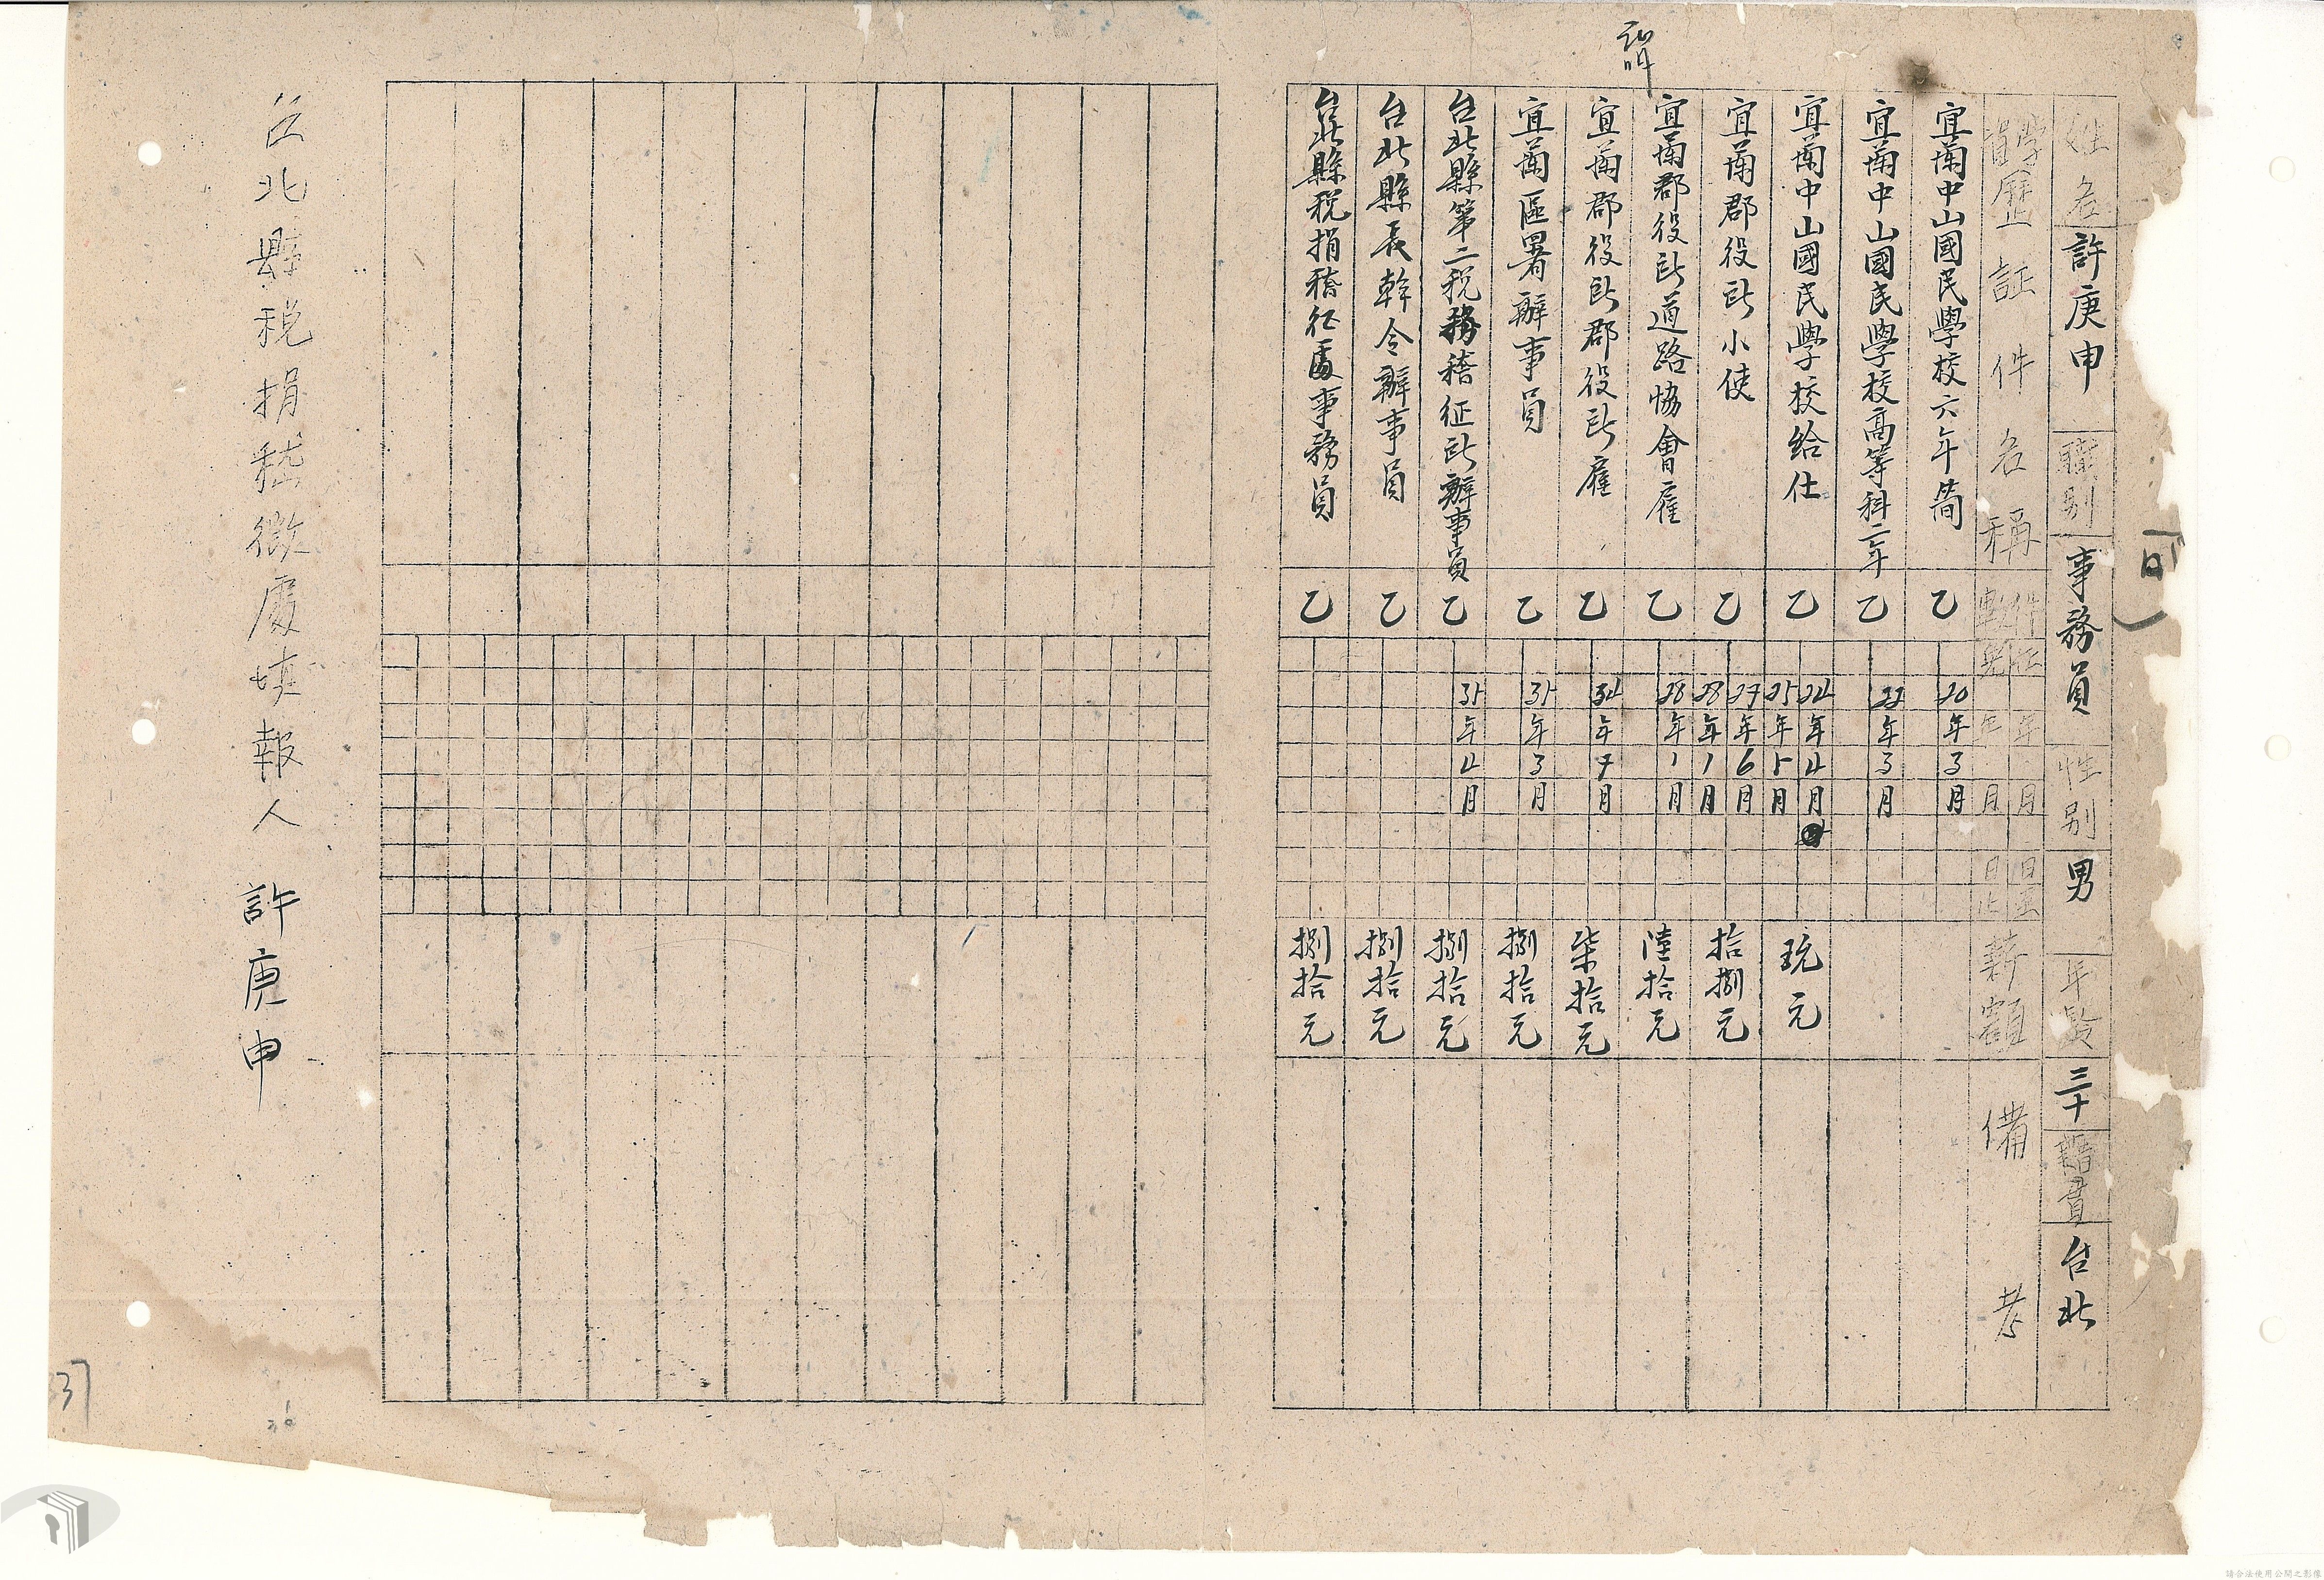 姓名 許庚申 職別 事務員 性別 男 年齡 三十 籍貫 台北
學資歷証件名稱 件數 年月日至 年月日止 薪額 備考
宜蘭中山國民學校六年 乙 20年3月
宜蘭中山國民學校高等科二年 乙 22年3月
宜蘭中山國民學校給仕 乙 24年4月 25年5月 玖元
宜蘭郡役所小使 乙 27年6月 28年1月 拾捌元
宜蘭郡役所道路協會雇 乙 28年1月 陸拾元
宜蘭郡役所郡役所雇 乙 34年7月 柒拾元
宜蘭區署辦事員 乙 35年3月 捌拾元
台北縣第二稅務稽征所辦事員 乙 35年4月 捌拾元
台北縣長幹令辦事員 乙 捌拾元
台北縣稅捐稽征處事務員 乙 捌拾元
台北縣稅捐稽徵處填報人 許庚申
37
請合法使用公開之影像